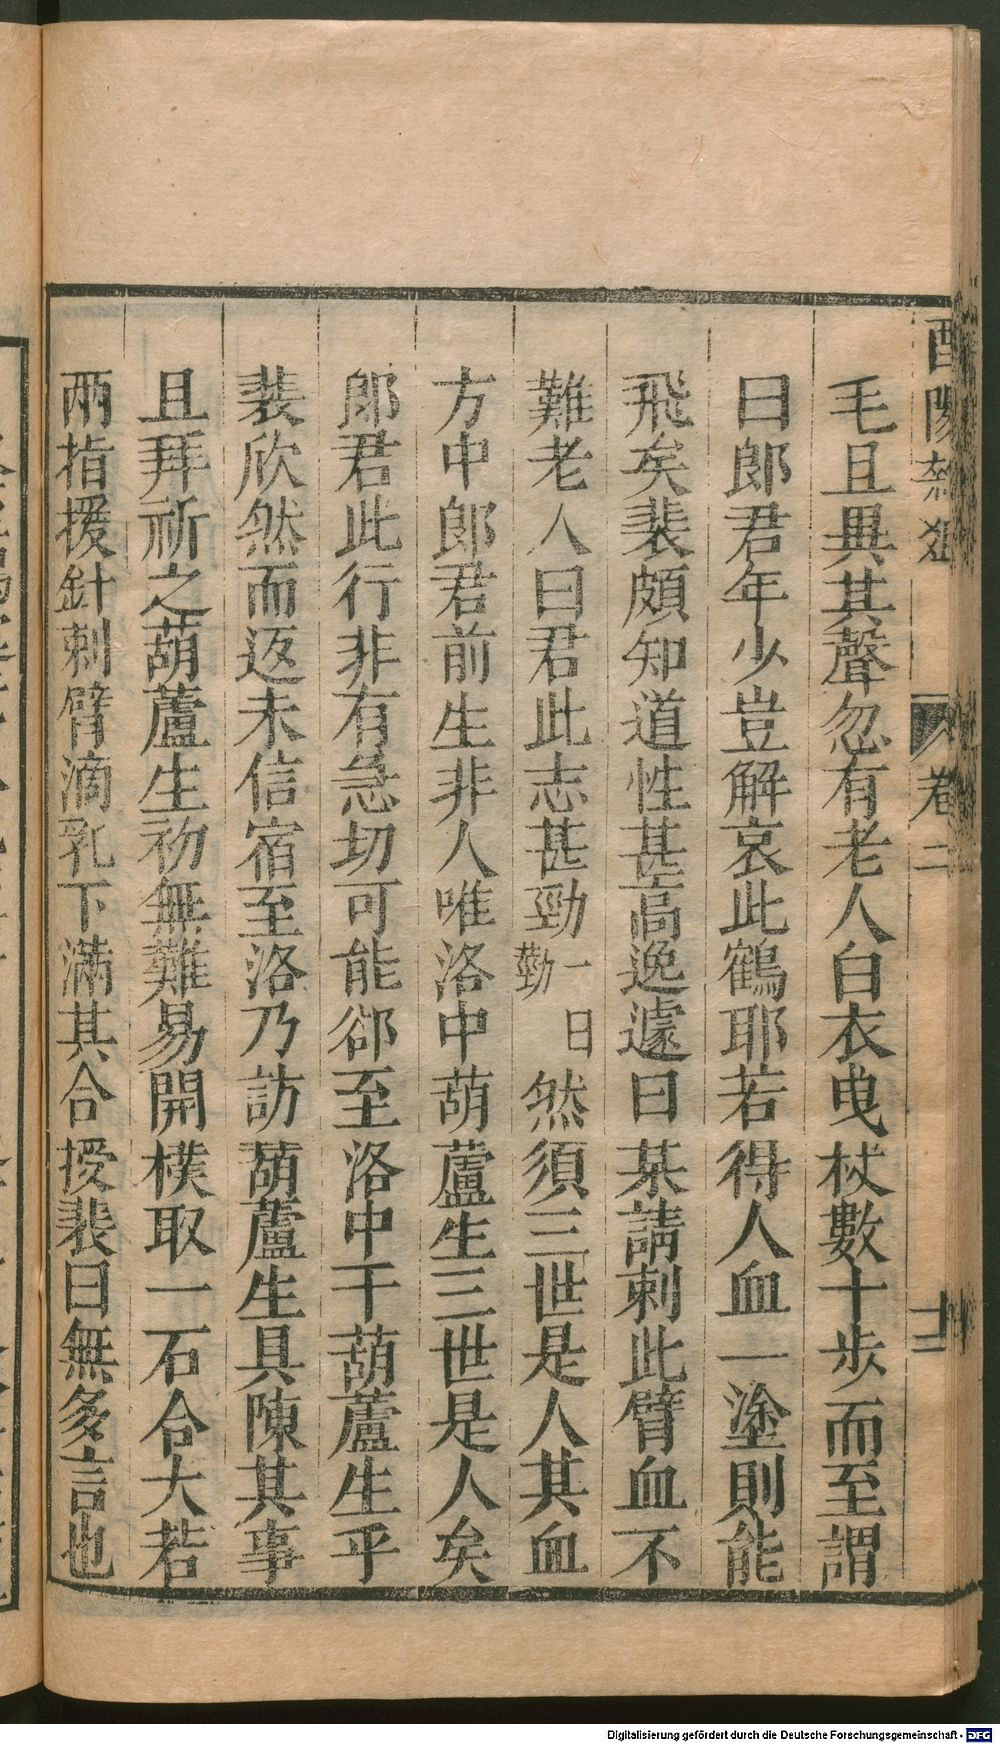 酉陽雜俎 卷二 十三
毛且異其聲忽有老人白衣曳杖數十步而至謂
曰郎君年少豈解哀此鶴耶若得人血一塗則能
飛矣裴頗知道性甚高逸遽曰某請刺此臂血不
難老人曰君此志甚勁一曰勤然須三世是人其血
方中郎君前生非人唯洛中葫蘆生三世是人矣
郎君此行非有急切可能郤至洛中干葫蘆生乎
裴欣然而返未信宿至洛乃訪葫蘆生具陳其事
且拜祈之葫蘆生初無難易開樸取一石合大若
兩指援針刺臂滴乳下滿其合授裴曰無多言也
Digitalisierung gefördert durch die Deutsche Forschungsgemeinschaft - DFG